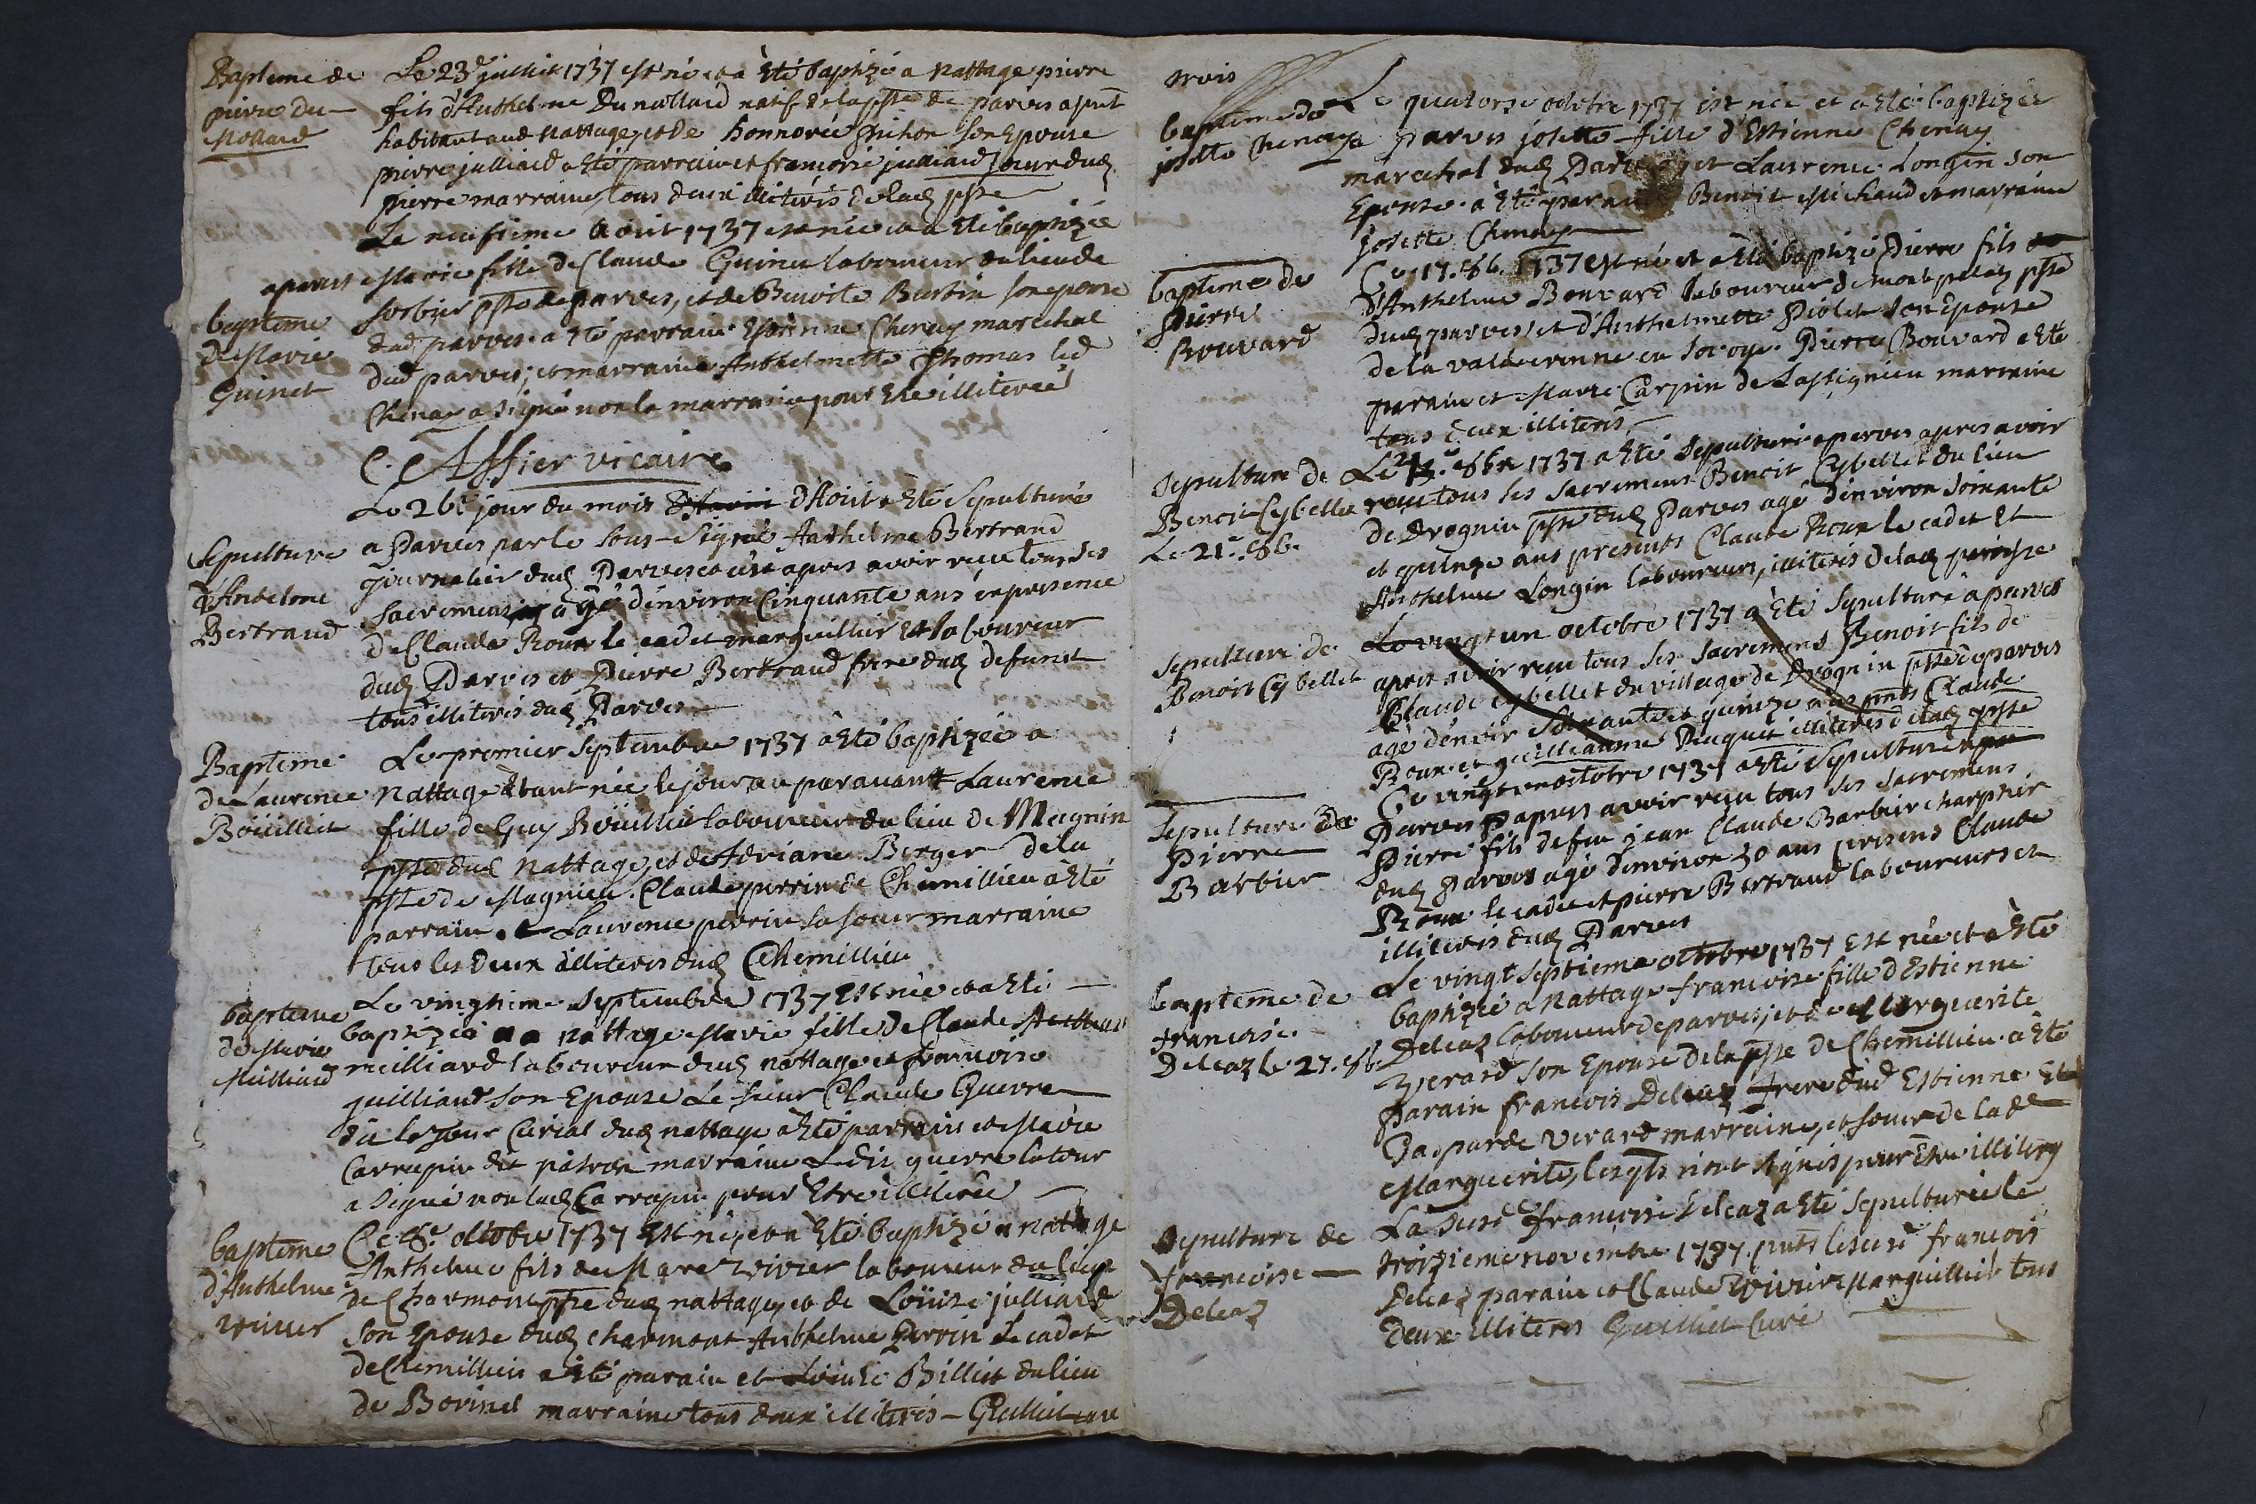 Bapteme de
pierre du
Mollard
Le 23e juillet 1737 est né et a Eté baptizé a Nattage pierre
fils d'Anthelme Du nollard natif de la psse de parves a pnt
habitant aud Nattage, et de honnorée pichon son Epouse
pierre julliard a Eté parrain et francoise julliard soeur dud
pierre marraine, tous deux illiterés de lad psse
Le neufieme Aoust 1737 est née et a Eté baptizée
a parves Marie fille de Claude Guinet laboureur du lieu de
Sorbier psse de parves, et de Benoite Burtin son epouse
dud parves. a Eté parrain Estienne Chenay marechal
dud parves; et marraine Anthelmette Thomas led
Chenay a signé non la marraine pour Etre illiterée
bapteme
de Marie
Guinet
C. Assier vicaire
Le 26e jour du mois d'Aoüt a Eté Sepulturé
a Parves par le sous-signé Anthelme Bertrand
journalier dud Parves et ce apres avoir receu tous ses
Sacremens agé d'environ Cinquante ans en presence
de Claude Roux le cadet marguillier Et laboureur
dud Parves et Pierre Bertrand frere dud defunct
tous illiterés dud Parves
Sepulture
d'Antelme
Bertrand
Bapteme
de Laurence
Boüillet
Le premier Septembre 1737 a Eté baptizée a
Nattage Etant née le jour au paravant Laurence
fille de Guy Boüillet laboureur du lieu de Meignin
psse dud Nattage, et de Adriane Berger de la
psse de Magnieu. Claude perrin de Chemillieu a Eté
parrain. et Laurence perrin sa soeur marraine
tous les deux illiterés dud Chemillieu
bapteme
de Marie
Milliard
Le vingtieme Septembre 1737 Est née et a Eté
baptizée a nattage Marie fille de Claude
meilliard laboureur dud nattage et francoise
juilliand son Epouse Le sieur Claude Guerre
dit la tour Curial dud nattage a Eté parrain et Marie
Carrepin dit patron marraine Ledit guerre latour
a signé non lad Carrapin pour Etre illiterée
bapteme
d'Anthelme
vivier
Ce 8e octobre 1737 Est né, et a Eté baptizé a nattage
Anthelme fils de Marc vivier laboureur du lieu
de Charmont psse dud nattage, et de Loüise julliard
son Epouse dud charmont Anthelme Perrin Le cadet
de Chemillieu a Eté parain et Loüise Billiet du lieu
de Borinel marraine tous deux illiterés - Guilliet curé
trois
bapteme de
josette Chenay
Le quatorse octobre 1737 est née et a Eté baptizée
a Parves josette fille d'Estienne Chenay
marechal dud Parves et Laurence Longin son
Epouse. a Eté parain Benoit Michaud et marraine
josette Chenay
bapteme de
Pierre
Bouvard
Ce 17. 8b. 1737 est né et a Eté baptizé Pierre fils
d'Anthelme Bouvard laboureur de
dud parves, et d'Anthelmette Piolet son Epouse
de la valderonne en Savoye. Pierre Bouvard a Eté
parain et Marie Carpin de Lassignieu marraine
tous deux illiterés
Sepulture de
Benoit Cybellet
Le 21e 8b.
Le 8bre 1737 a Eté Sepulturé a parves apres avoir
receu tous ses Sacremens Benoit Cybellet du lieu
de Drognin psse dud Parves agé d'environ soixante
et quinze ans presents Claude Roux le cadet Et
Anthelme Longin laboureurs, illiterés de lad paroisse
Sepulture de
Benoit Cybellet
Le vingt un octobre 1737 a Eté Sepulturé a parves
apres avoir receu tous ses Sacremens Benoit fils de
Claude Cybellet du village de Drognin psse de parves
agé d'envir soixante et quinze ans pnts Claude
Roux et guilleaume illiterés de lad psse
Sepulture de
Pierre
Barbier
Ce vingt un octobre 1737 a Eté Sepulturé
Parves apres avoir receu tous ses Sacremens
Pierre fils de feu jean Claude Barbier charptier
dud Parves agé d'environ 30 ans presens Claude
Roux le cadet et pierre Bertrand laboureurs et
illiterés dud Parves
bapteme de
francoise
Deleaz le 27. 8b.
Le vingt Septieme octobre 1737 Est née et a Eté
baptizée a Nattage francoise fille d'Estienne
Deleaz laboureur de parves, et de Marguerite
Verard son Epouse de la psse de Chemillieu. a Eté
parain francois Deleaz frere dud Estienne Et
Gasparde Verard marraine, et soeur de lade
Marguerite, lesqls n'ont signés pour Etre illiterés
Sepulture de
francoise
Deleaz
La susde francoise Deleaz a Eté Sepulturée le
troizieme novembre 1737 pnts le susd francois
Deleaz parain et Claude Vivier Marguillier tous
deux illiterés Guilliet Curé